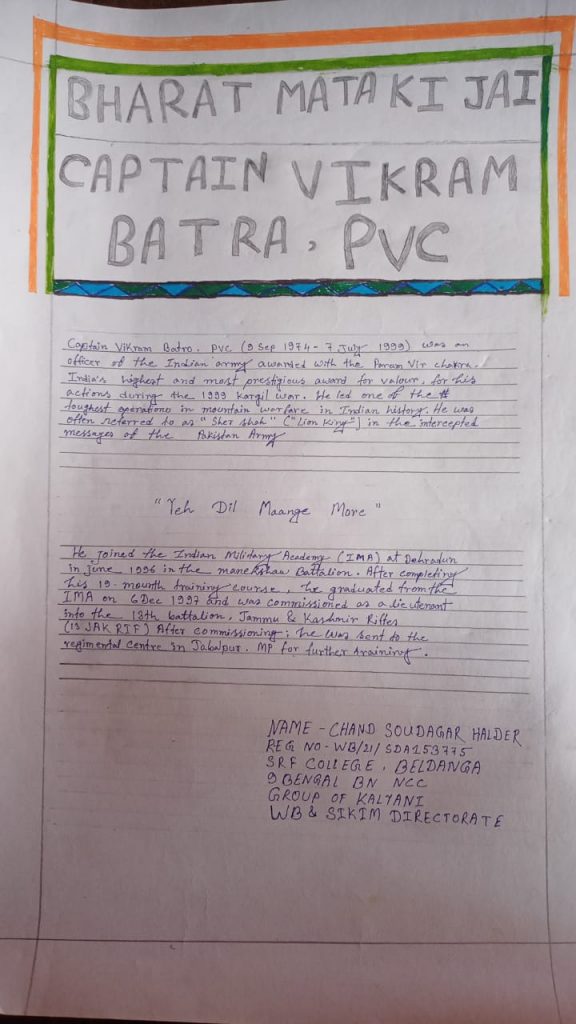 BHARAT MATA KI JAI
CAPTAIN VIKRAM
BATRA, PVC
Captain Vikram Batro. PVC (9 Sep 1974 - 7 July 1999) was an
officer of the Indian army awarded with the Param Vir chakra.
India's highest and most prestigious award for valour, for his
actions during the 1999 Kargil war. He led one of the
toughest operations in mountain warfare in Indian history. He was
often referred to as "Sher shah" ("Lion King") in the intercepted
messages of the Pakistan Army
"Yeh Dil Maange More"
He joined the Indian Military Academy (IMA) at Dehradun
in june 1996 in the manekshaw Battalion. After completing
his 19-mounth training course, he graduated from the
IMA on 6 Dec 1997 and was commissioned as a lieutenant
into the 13th battalion, Jammu & Kashmir Rifles
(13 JAK RIF) After commissioning; he was sent to the
regimental centre in Jabalpur. MP for further training.
NAME - CHAND SOUDAGAR HALDER
REG NO - WB/21/SDA153775
SRF COLLEGE, BELDANGA
9 BENGAL BN NCC
GROUP OF KALYANI
WB & SIKIM DIRECTORATE